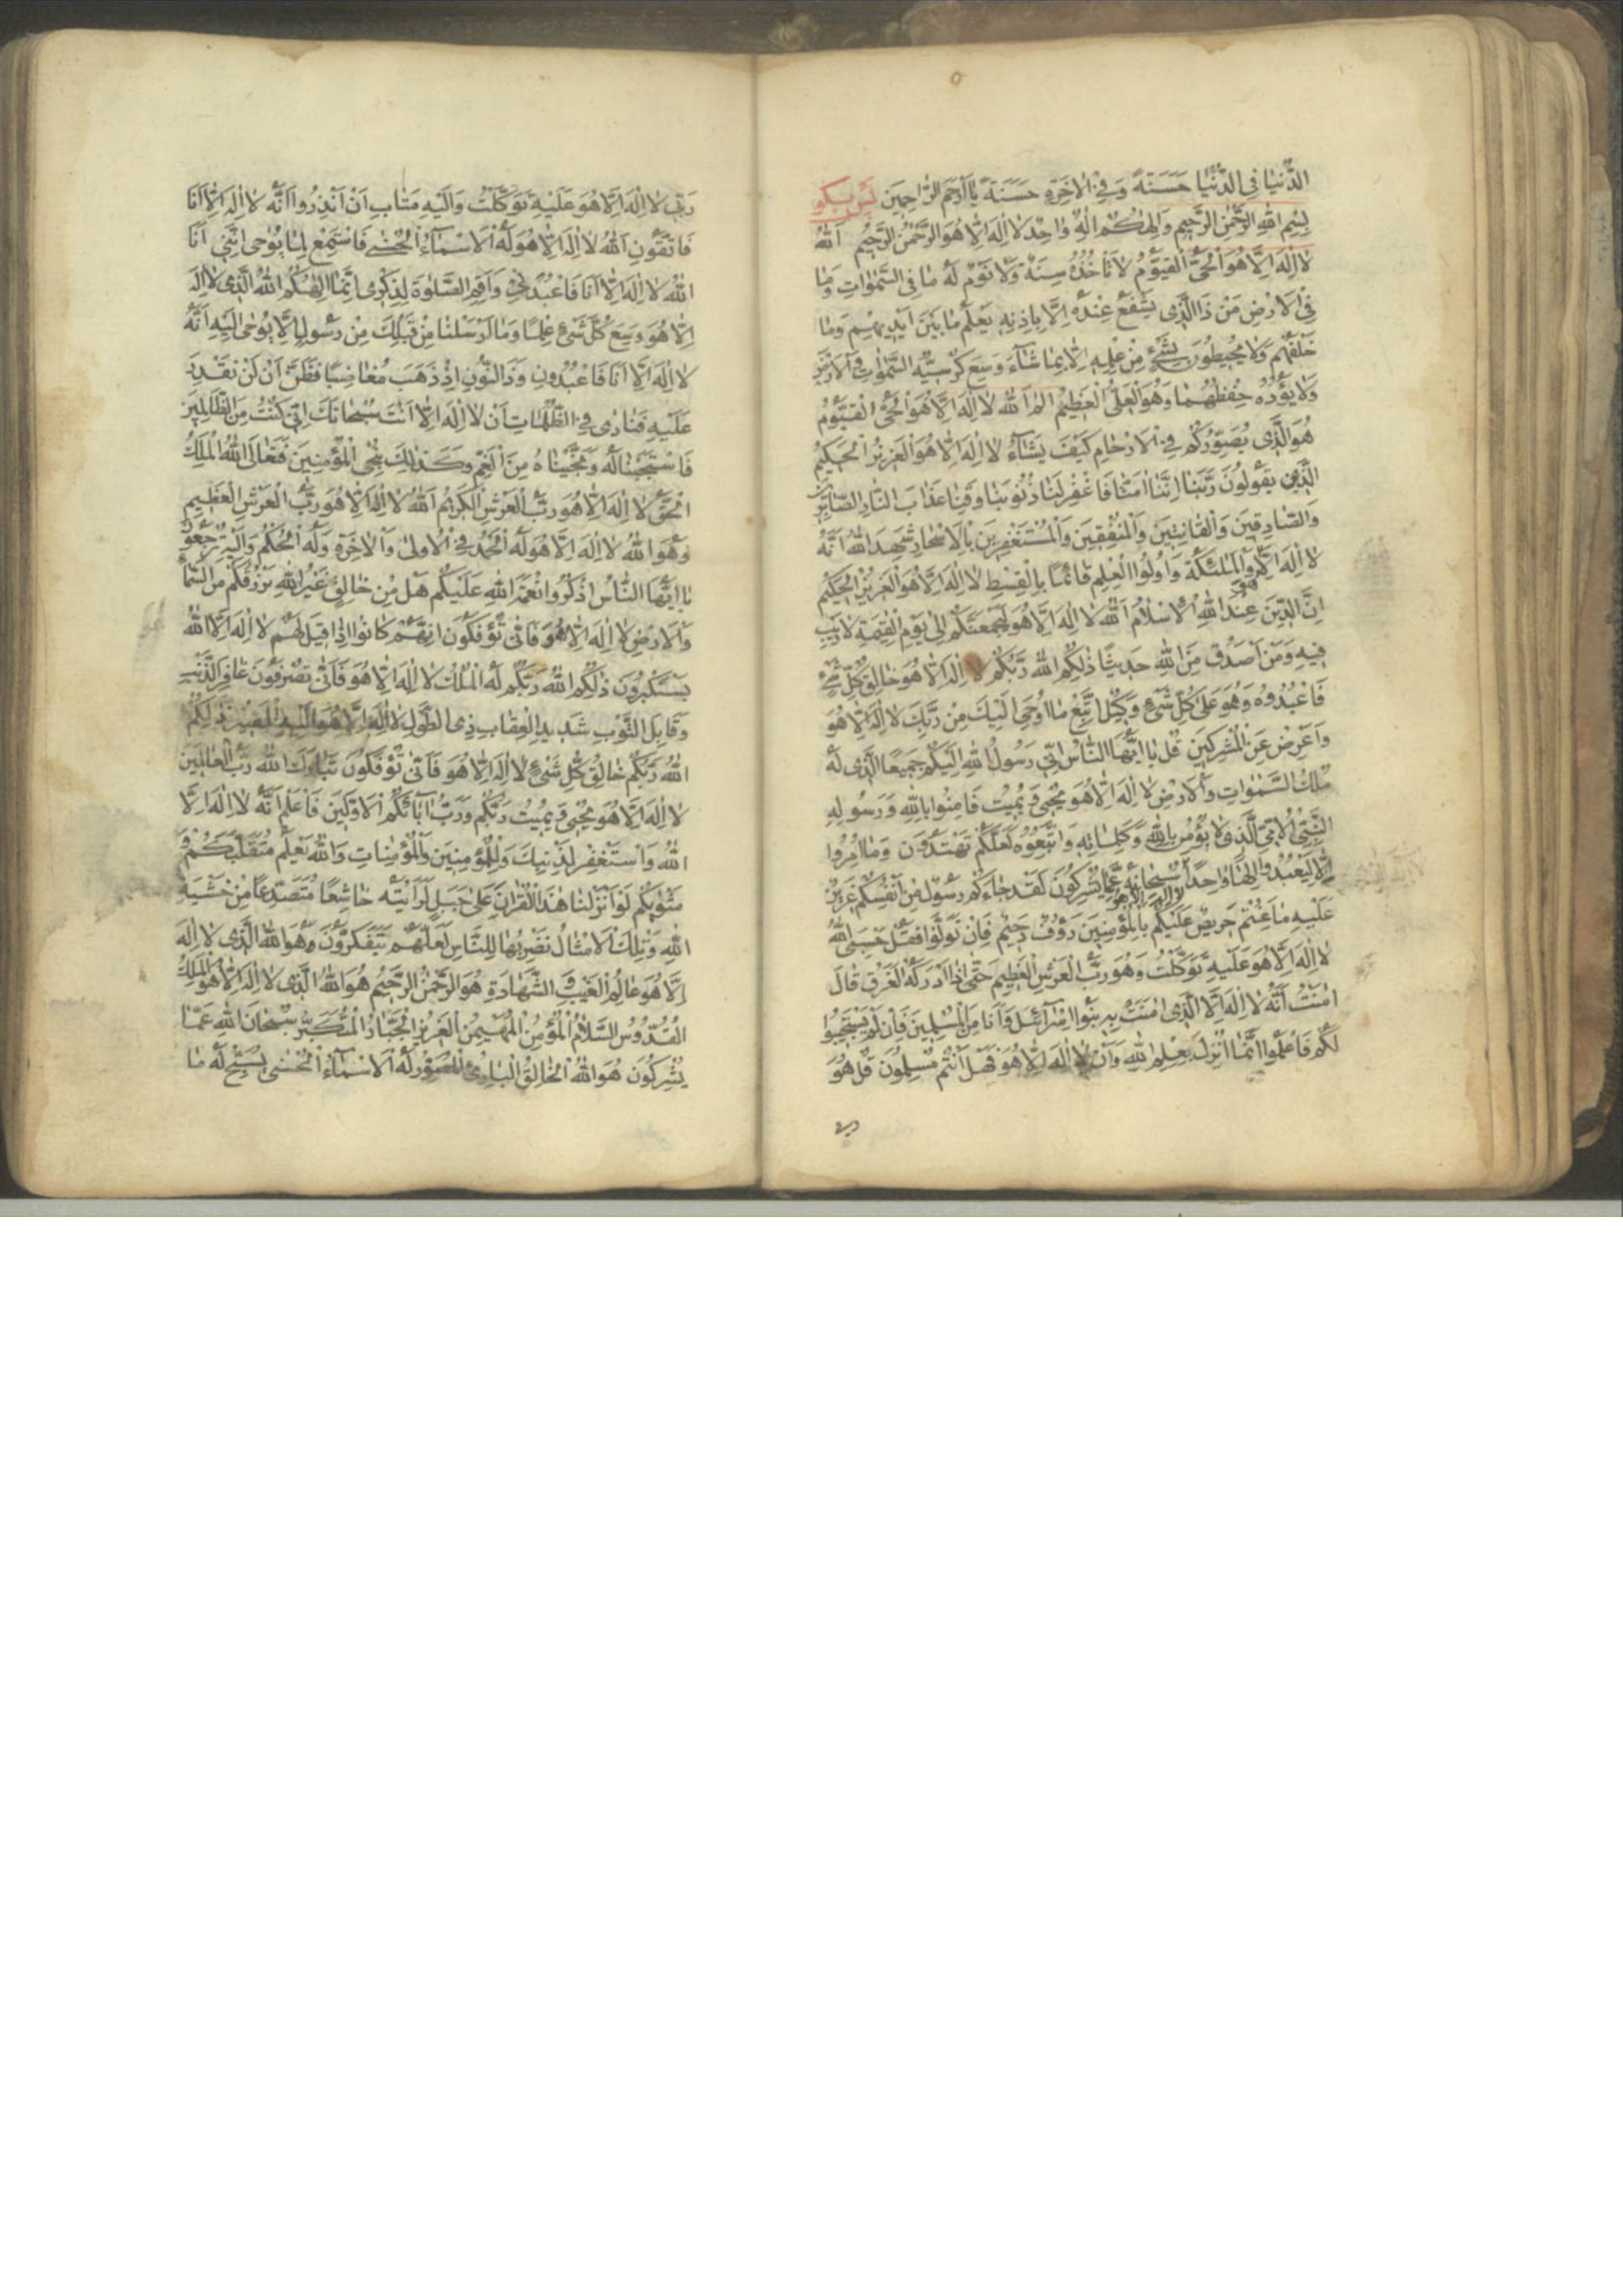 الدُّنْيَا فِى الدُّنْيَا حَسَنَةً وَفِى الْاٰخِرَةِ حَسَنَةً يَا اَرْحَمَ الرَّاحِمِينَ
بِسْمِ اللّٰهِ الرَّحْمٰنِ الرَّحِيمِ وَاِلٰهُكُمْ اِلٰهٌ وَاحِدٌ لَا اِلٰهَ اِلَّا هُوَ الرَّحْمٰنُ الرَّحِيمُ اَللّٰهُ
لَا اِلٰهَ اِلَّا هُوَ الْحَىُّ الْقَيُّومُ لَا تَأْخُذُهُ سِنَةٌ وَلَا نَوْمٌ لَهُ مَا فِى السَّمٰوَاتِ وَمَا
فِى الْاَرْضِ مَنْ ذَا الَّذِى يَشْفَعُ عِنْدَهُ اِلَّا بِاِذْنِهِ يَعْلَمُ مَا بَيْنَ اَيْدِيهِمْ وَمَا
خَلْفَهُمْ وَلَا يُحِيطُونَ بِشَىْءٍ مِنْ عِلْمِهِ اِلَّا بِمَا شَاءَ وَسِعَ كُرْسِيُّهُ السَّمٰوَاتِ وَالْاَرْضَ
وَلَا يَؤُدُهُ حِفْظُهُمَا وَهُوَ الْعَلِىُّ الْعَظِيمُ الم اَللّٰهُ لَا اِلٰهَ اِلَّا هُوَ الْحَىُّ الْقَيُّومُ
هُوَ الَّذِى يُصَوِّرُكُمْ فِى الْاَرْحَامِ كَيْفَ يَشَاءُ لَا اِلٰهَ اِلَّا هُوَ الْعَزِيزُ الْحَكِيمُ
الَّذِينَ يَقُولُونَ رَبَّنَا اِنَّنَا اٰمَنَّا فَاغْفِرْ لَنَا ذُنُوبَنَا وَقِنَا عَذَابَ النَّارِ الصَّابِرِينَ
وَالصَّادِقِينَ وَالْقَانِتِينَ وَالْمُنْفِقِينَ وَالْمُسْتَغْفِرِينَ بِالْاَسْحَارِ شَهِدَ اللّٰهُ اَنَّهُ
لَا اِلٰهَ اِلَّا هُوَ وَالْمَلٰئِكَةُ وَاُولُوا الْعِلْمِ قَائِمًا بِالْقِسْطِ لَا اِلٰهَ اِلَّا هُوَ الْعَزِيزُ الْحَكِيمُ
اِنَّ الدِّينَ عِنْدَ اللّٰهِ الْاِسْلَامُ اَللّٰهُ لَا اِلٰهَ اِلَّا هُوَ لَيَجْمَعَنَّكُمْ اِلٰى يَوْمِ الْقِيٰمَةِ لَا رَيْبَ
فِيهِ وَمَنْ اَصْدَقُ مِنَ اللّٰهِ حَدِيثًا ذٰلِكُمُ اللّٰهُ رَبُّكُمْ لَا اِلٰهَ اِلَّا هُوَ خَالِقُ كُلِّ شَىْءٍ
فَاعْبُدُوهُ وَهُوَ عَلٰى كُلِّ شَىْءٍ وَكِيلٌ اِتَّبِعْ مَا اُوحِىَ اِلَيْكَ مِنْ رَبِّكَ لَا اِلٰهَ اِلَّا هُوَ
وَاَعْرِضْ عَنِ الْمُشْرِكِينَ قُلْ يَا اَيُّهَا النَّاسُ اِنِّى رَسُولُ اللّٰهِ اِلَيْكُمْ جَمِيعًا الَّذِى لَهُ
مُلْكُ السَّمٰوَاتِ وَالْاَرْضِ لَا اِلٰهَ اِلَّا هُوَ يُحْيِى وَيُمِيتُ فَاٰمِنُوا بِاللّٰهِ وَرَسُولِهِ
النَّبِىِّ الْاُمِّىِّ الَّذِى لَا يُؤْمِنُ بِاللّٰهِ وَكَلِمَاتِهِ وَاتَّبِعُوهُ لَعَلَّكُمْ تَهْتَدُونَ وَمَا اُمِرُوا
اِلَّا لِيَعْبُدُوا اِلٰهًا وَاحِدًا لَا اِلٰهَ اِلَّا هُوَ سُبْحَانَهُ عَمَّا يُشْرِكُونَ لَقَدْ جَاءَكُمْ رَسُولٌ مِنْ اَنْفُسِكُمْ عَزِيزٌ
عَلَيْهِ مَا عَنِتُّمْ حَرِيصٌ عَلَيْكُمْ بِالْمُؤْمِنِينَ رَؤُفٌ رَحِيمٌ فَاِنْ تَوَلَّوْا فَقُلْ حَسْبِىَ اللّٰهُ
لَا اِلٰهَ اِلَّا هُوَ عَلَيْهِ تَوَكَّلْتُ وَهُوَ رَبُّ الْعَرْشِ الْعَظِيمِ حَتّٰى اِذَا اَدْرَكَهُ الْغَرَقُ قَالَ
اٰمَنْتُ اَنَّهُ لَا اِلٰهَ اِلَّا الَّذِى اٰمَنَتْ بِهِ بَنُوا اِسْرَائِلَ وَاَنَا مِنَ الْمُسْلِمِينَ فَاِنْ لَمْ يَسْتَجِيبُوا
لَكُمْ فَاعْلَمُوا اَنَّمَا اُنْزِلَ بِعِلْمِ اللّٰهِ وَاَنْ لَا اِلٰهَ اِلَّا هُوَ فَهَلْ اَنْتُمْ مُسْلِمُونَ قُلْ هُوَ
رَبِّى لَا اِلٰهَ اِلَّا هُوَ عَلَيْهِ تَوَكَّلْتُ وَاِلَيْهِ مَتَابِ اَنْ اَنْذِرُوا اَنَّهُ لَا اِلٰهَ اِلَّا اَنَا
فَاتَّقُونِ اَللّٰهُ لَا اِلٰهَ اِلَّا هُوَ لَهُ الْاَسْمَاءُ الْحُسْنٰى فَاسْتَمِعْ لِمَا يُوحٰى اِنَّنِى اَنَا
اللّٰهُ لَا اِلٰهَ اِلَّا اَنَا فَاعْبُدْنِى وَاَقِمِ الصَّلٰوةَ لِذِكْرِى اِنَّمَا اِلٰهُكُمُ اللّٰهُ الَّذِى لَا اِلٰهَ
اِلَّا هُوَ وَسِعَ كُلَّ شَىْءٍ عِلْمًا وَمَا اَرْسَلْنَا مِنْ قَبْلِكَ مِنْ رَسُولٍ اِلَّا يُوحٰى اِلَيْهِ اَنَّهُ
لَا اِلٰهَ اِلَّا اَنَا فَاعْبُدُونِ وَذَا النُّونِ اِذْ ذَهَبَ مُغَاضِبًا فَظَنَّ اَنْ لَنْ نَقْدِرَ
عَلَيْهِ فَنَادٰى فِى الظُّلُمَاتِ اَنْ لَا اِلٰهَ اِلَّا اَنْتَ سُبْحَانَكَ اِنِّى كُنْتُ مِنَ الظَّالِمِينَ
فَاسْتَجَبْنَا لَهُ وَنَجَّيْنَاهُ مِنَ الْغَمِّ وَكَذٰلِكَ نُنْجِى الْمُؤْمِنِينَ فَتَعَالَى اللّٰهُ الْمَلِكُ
الْحَقُّ لَا اِلٰهَ اِلَّا هُوَ رَبُّ الْعَرْشِ الْكَرِيمِ اَللّٰهُ لَا اِلٰهَ اِلَّا هُوَ رَبُّ الْعَرْشِ الْعَظِيمِ
وَهُوَ اللّٰهُ لَا اِلٰهَ اِلَّا هُوَ لَهُ الْحَمْدُ فِى الْاُولٰى وَالْاٰخِرَةِ وَلَهُ الْحُكْمُ وَاِلَيْهِ تُرْجَعُونَ
يَا اَيُّهَا النَّاسُ اذْكُرُوا نِعْمَةَ اللّٰهِ عَلَيْكُمْ هَلْ مِنْ خَالِقٍ غَيْرُ اللّٰهِ يَرْزُقُكُمْ مِنَ السَّمَاءِ
وَالْاَرْضِ لَا اِلٰهَ اِلَّا هُوَ فَاَنّٰى تُؤْفَكُونَ اِنَّهُمْ كَانُوا اِذَا قِيلَ لَهُمْ لَا اِلٰهَ اِلَّا اللّٰهُ
يَسْتَكْبِرُونَ ذٰلِكُمُ اللّٰهُ رَبُّكُمْ لَهُ الْمُلْكُ لَا اِلٰهَ اِلَّا هُوَ فَاَنّٰى تُصْرَفُونَ غَافِرِ الذَّنْبِ
وَقَابِلِ التَّوْبِ شَدِيدِ الْعِقَابِ ذِى الطَّوْلِ لَا اِلٰهَ اِلَّا هُوَ اِلَيْهِ الْمَصِيرُ ذٰلِكُمُ
اللّٰهُ رَبُّكُمْ خَالِقُ كُلِّ شَىْءٍ لَا اِلٰهَ اِلَّا هُوَ فَاَنّٰى تُؤْفَكُونَ تَبَارَكَ اللّٰهُ رَبُّ الْعَالَمِينَ
لَا اِلٰهَ اِلَّا هُوَ يُحْيِى وَيُمِيتُ رَبُّكُمْ وَرَبُّ اٰبَائِكُمُ الْاَوَّلِينَ فَاعْلَمْ اَنَّهُ لَا اِلٰهَ اِلَّا
اللّٰهُ وَاسْتَغْفِرْ لِذَنْبِكَ وَلِلْمُؤْمِنِينَ وَالْمُؤْمِنَاتِ وَاللّٰهُ يَعْلَمُ مُتَقَلَّبَكُمْ وَ
مَثْوٰيكُمْ لَوْ اَنْزَلْنَا هٰذَا الْقُرْاٰنَ عَلٰى جَبَلٍ لَرَاَيْتَهُ خَاشِعًا مُتَصَدِّعًا مِنْ خَشْيَةِ
اللّٰهِ وَتِلْكَ الْاَمْثَالُ نَضْرِبُهَا لِلنَّاسِ لَعَلَّهُمْ يَتَفَكَّرُونَ وَهُوَ اللّٰهُ الَّذِى لَا اِلٰهَ
اِلَّا هُوَ عَالِمُ الْغَيْبِ وَالشَّهَادَةِ هُوَ الرَّحْمٰنُ الرَّحِيمُ هُوَ اللّٰهُ الَّذِى لَا اِلٰهَ اِلَّا هُوَ الْمَلِكُ
الْقُدُّوسُ السَّلَامُ الْمُؤْمِنُ الْمُهَيْمِنُ الْعَزِيزُ الْجَبَّارُ الْمُتَكَبِّرُ سُبْحَانَ اللّٰهِ عَمَّا
يُشْرِكُونَ هُوَ اللّٰهُ الْخَالِقُ الْبَارِئُ الْمُصَوِّرُ لَهُ الْاَسْمَاءُ الْحُسْنٰى يُسَبِّحُ لَهُ مَا